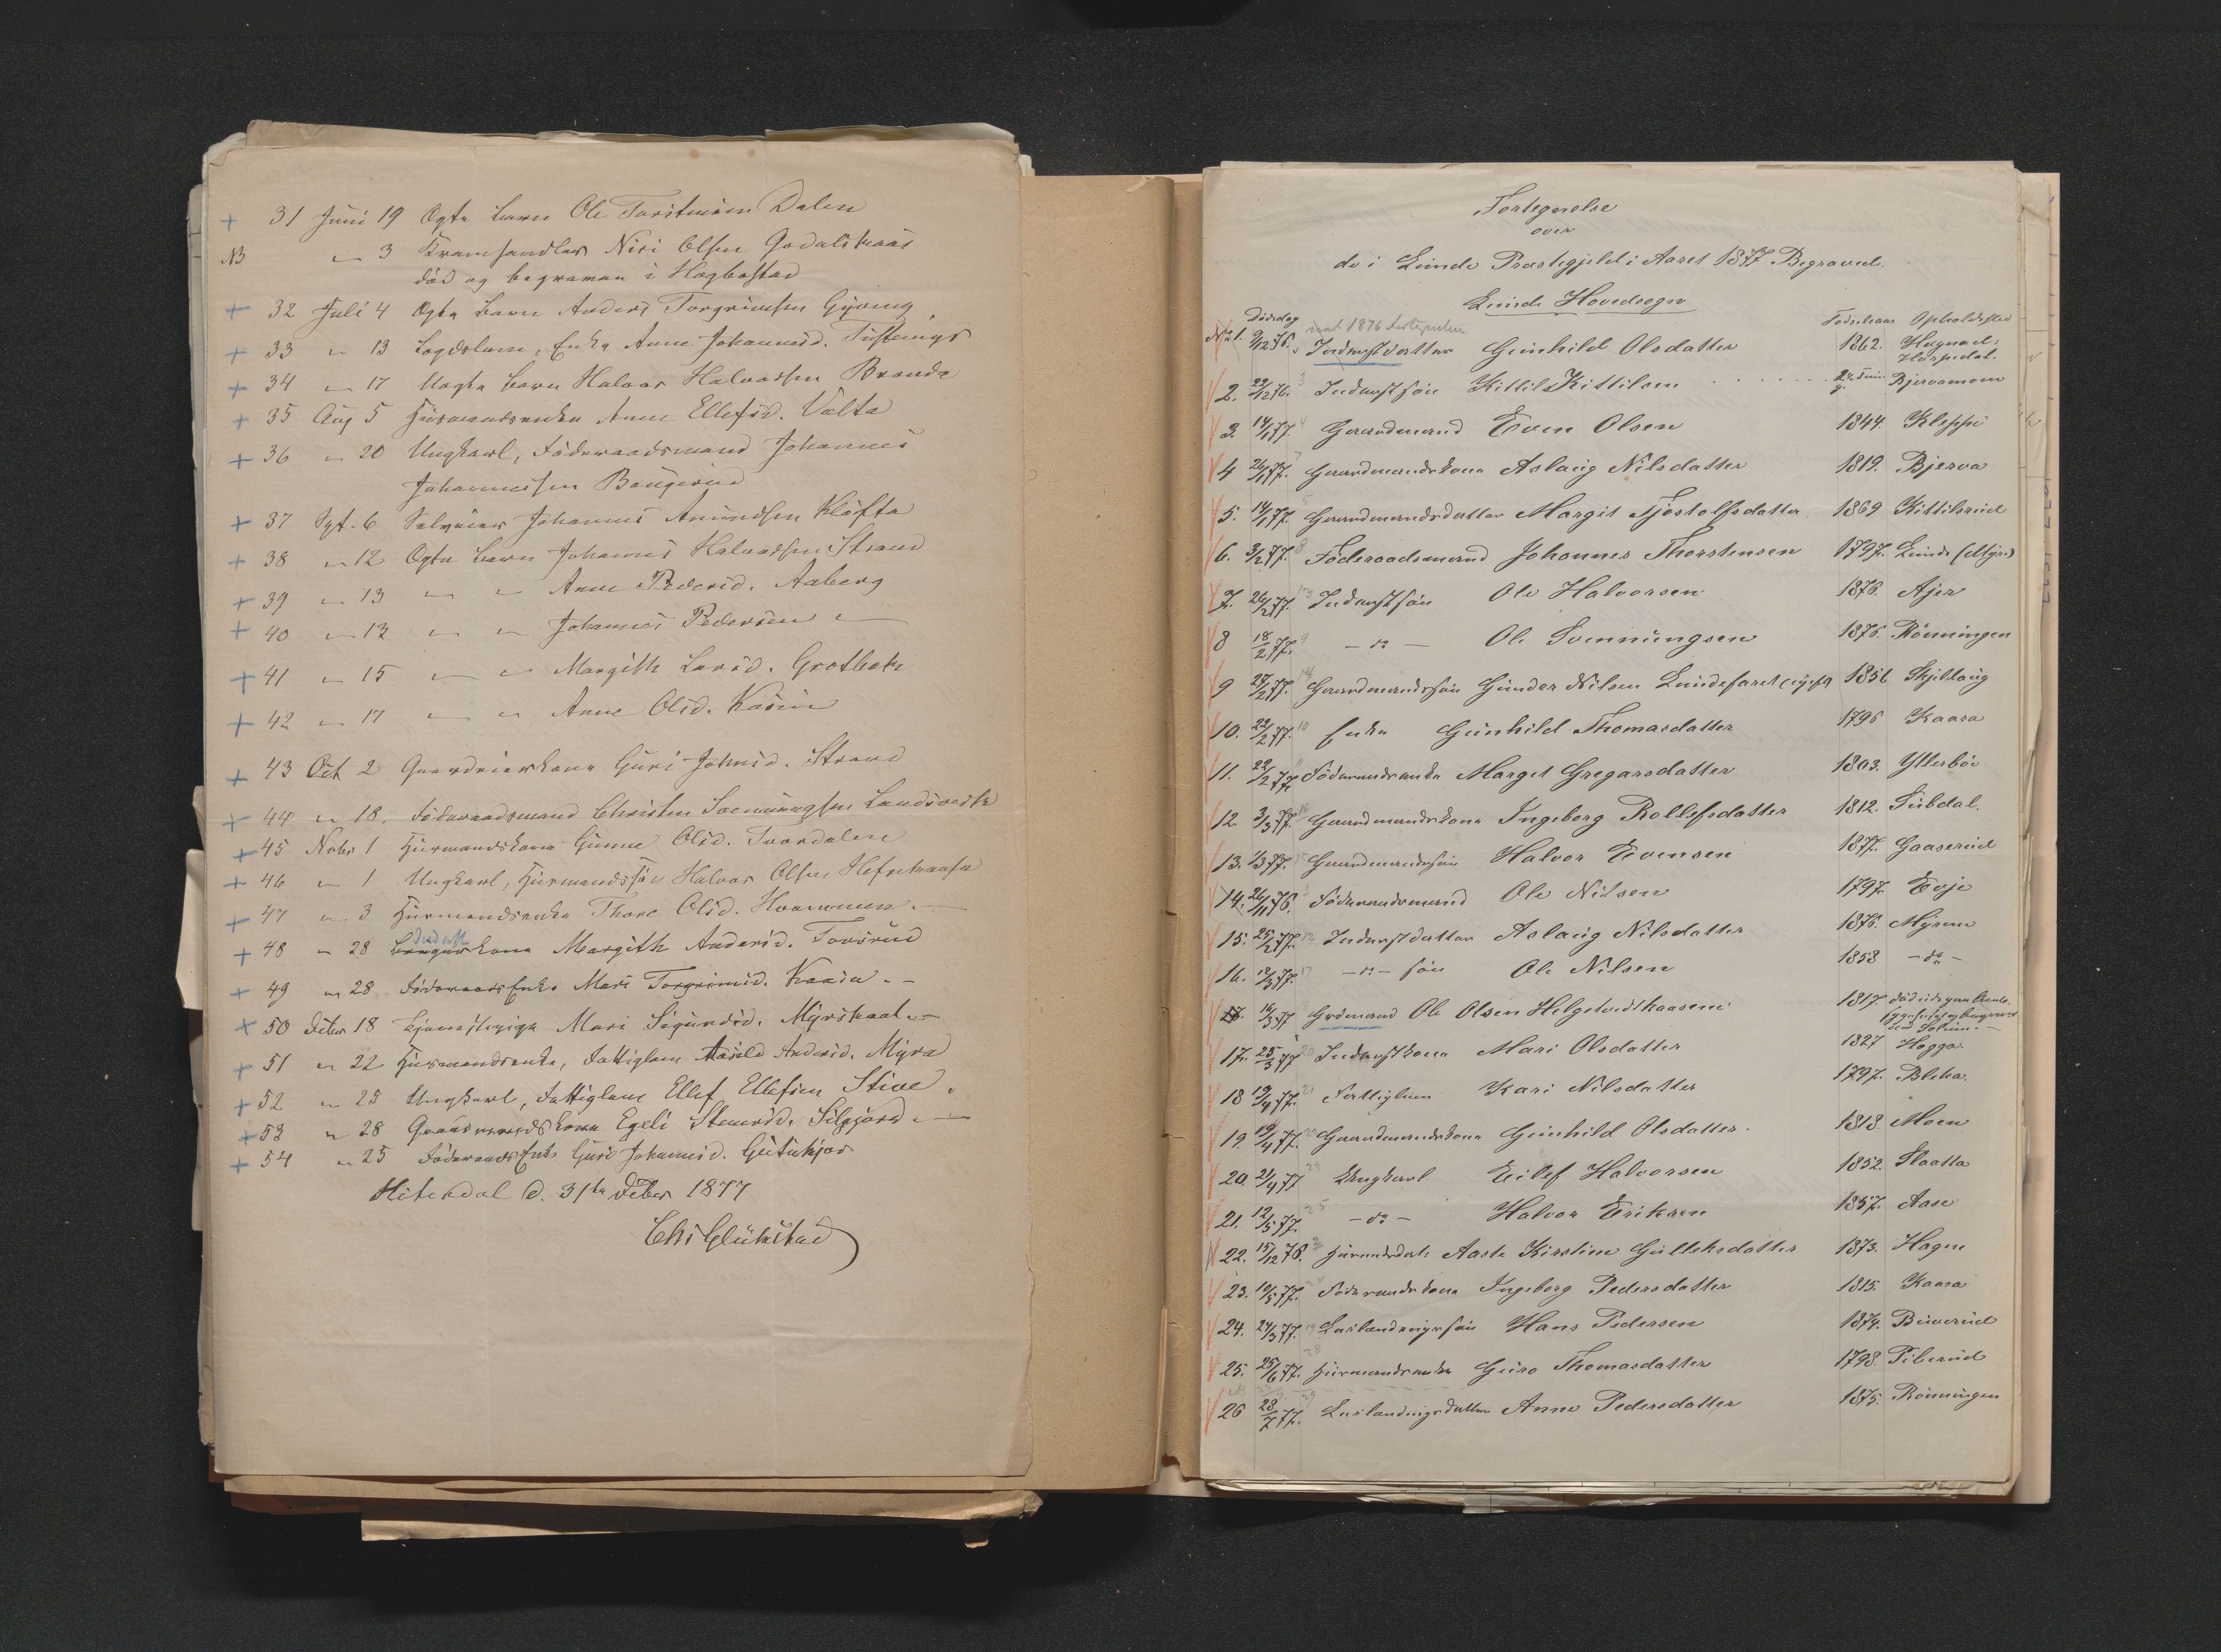 31 Juni 19 Ægte barn Ole Torstensen Dalen
NB " 3 Kramhandler Niri Olsen Godalskaas
død og begraven i Hægbostad
32 Juli 4 Ægte barn Anders Torgrimsen Gjøing
33 " 13 Lægdslem, Enke Anne Johannesd.
34 " 17 Uægte barn Halvor Halvorsen Brande
35 Aug 5 Husmandsenke Anne Ellefsd. Valta
36 " 20 Ungkarl, Føderaadsmand Johannes
Johannessen Baugerud
37 Spt. 6 Selveier Johannes Amundsen Kløfta
38 " 12 Ægte barn Johannes Halvorsen Strand
39 " 13 " " Anne Pedersd. Aaberg
40 " 12 " " Johannes Pedersen "
41 " 15 " " Margith Larsd. Grotbæk
42 " 17 " " Anne Olsd. Kasin
43 Oct 2 Gaardeierkone Guri Johnsd. Strand
44 " 18. Føderaadsmand Christen Svenningsen Landsverk
45 Novbr 1 Husmandskone Gunne Olsd. Tvordalen
46 " 1 Ungkarl, Husmandssøn Halvor Olsen
47 " 3 Husmandsenke Thore Olsd. Hvammen.
48 " 28 Inderst kone Margith Andersd. Torsrud
49 " 28 Føderaads Enke Mari Torgrimsd. Kaasa. -
50 Deber 18 Tjenestepige Mari Sigurdsd. Myrskaal. -
51 " 22 Husmandsenke, Fattiglem Andersd. Myra
52 " 25 Ungkarl, Fattiglem Ellef Ellefsen Stive "
53 " 28 Gaardmandskone Egeli Stenersd. Silgjord. -
54 " 25 Føderaads Enke Guro Johannesd.
Hiterdal d. 31te Deber 1877
Chr Glükstad
Fortegnelse
over
de i Lunde Præstegjeld i Aaret 1877 Begravede.
Lunde Hovedsogn
Dödsdag Födselsaar Opholdssted
No 1. 9/12 76. Inderstdatter Gunhild Olsdatter 1862. Hagna d:
Harpedal.
2. 22/12 76. 3 Inderstsøn Kittil Kittilsen . . . . . . 24 Juni Bjervamoen
3. 14/1 77. 4 Gaardmand Even Olsen 1844. Kleppe
4 26/1 77. 7 Gaardmandskone Aslaug Nilsdatter 1819. Bjerva
5. 14/1 77. 5 Gaardmandsdatter Margit Tjostolfsdatter 1869 Kittilsrud
6. 3/2 77. 8 Föderaadsmand Johannes Thorstensen 1797. Lunde (Myre)
7. 26/2 77. 13 Inderstsøn Ole Halvorsen 1876. Ajer
8 18/2 77. 9 - do - Ole Svenningsen 1876. Rönningen
9 27/2 77. 14 Gaardmandssøn Gunder Nilsen Lundefaret (ugift) 1856 Skjillaug
10. 22/2 77. 10 Enke Gunhild Thomasdatter 1796 Kaasa
11. 22/2 77. 11 Föderaadsenke Marget Gregarsdatter 1803. Ytterböe
12. 3/3 77. 16 Gaardmandskone Ingeborg Rollefsdatter 1812. Subdal.
13. 1/3 77. 15 Gaardmandssøn Halvor Evensen 1877. Gaaserud
14. 26/11 76. 1 Föderaadsmand Ole Nilsen 1797. Evje
15. 25/2 77. 12 Inderstdatter Aslaug Nilsdatter 1876. Myrene
16. 12/3 77. 17 - do - søn Ole Nilsen 1858 - do -
16/3 77 Grdmand Ole Olsen Helgetvedtkaasene 1817
17. 25/3 77 20 Inderstkone Mari Olsdatter 1827 Hogga.
18 19/4 77. 21 Fattiglem Kari Nilsdatter 1797. Bleka.
19. 19/4 77. Gaardmandskone Gunhild Olsdatter. 1818. Moen
20. 21/4 77 23 Ungkarl Eilef Halvorsen 1852. Slaatta
21. 12/5 77. 25 - do - Halvor Eriksen 1857. Aase
22. 15/12 76. 2 Husmandsdatr Aaste Kirstine Gulleksdatter 1873. Hagen
23. 10/5 77. 24 Föderaadskone Ingeborg Pedersdatter 1815. Kaasa
24. 24/3 77. 19 Leilændingssøn Hans Pedersen 1874. Buverud
25. 25/6 77. 28 Husmandsenke Guro Thomasdatter 1798. Piberud
26 28/7 77. 29 Leilændingsdatter Anne Pedersdatter 1875. Rönningen